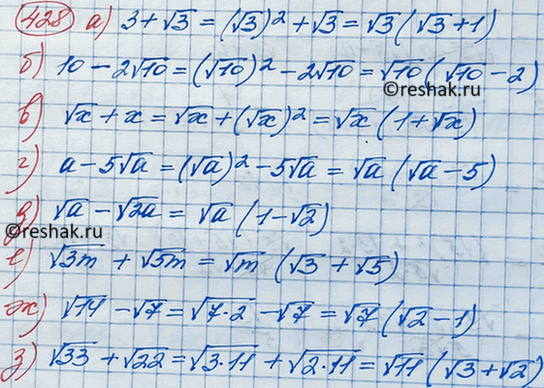 428 а) 3 + √3 = (√3)² + √3 = √3 (√3 + 1)
б) 10 - 2√10 = (√10)² - 2√10 = √10 (√10 - 2)
©reshak.ru
в) √x + x = √x + (√x)² = √x (1 + √x)
г) a - 5√a = (√a)² - 5√a = √a (√a - 5)
©reshak.ru
д) √a - √2a = √a (1 - √2)
е) √3m + √5m = √m (√3 + √5)
ж) √14 - √7 = √7·2 - √7 = √7 (√2 - 1)
з) √33 + √22 = √3·11 + √2·11 = √11 (√3 + √2)